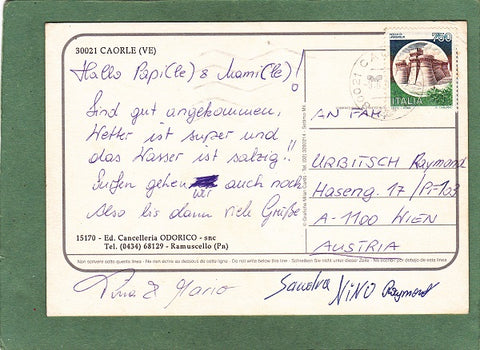 30021 CAORLE (VE)
Hallo Papi(le) & Mami(le)!
Sind gut angekommen,
Wetter ist super und
das Wasser ist salzig!!
Surfen gehen wir auch noch
Also bis dann viele Grüße
15170 - Ed. Cancelleria ODORICO - snc
Tel. (0434) 68129 - Ramuscello (Pn)
750
ITALIA
AN FAM.
URBITSCH Raymond
Haseng. 17 / Pf 103
A-1100 WIEN
AUSTRIA
Non scrivere sotto questa linea - Ne rien écrire au dessous de cette ligne - Do not write below this line - Schreiben Sie nicht unter dieser Zeile - No escribir por debajo de esta línea
& Mario
Sandra NINO Raymond